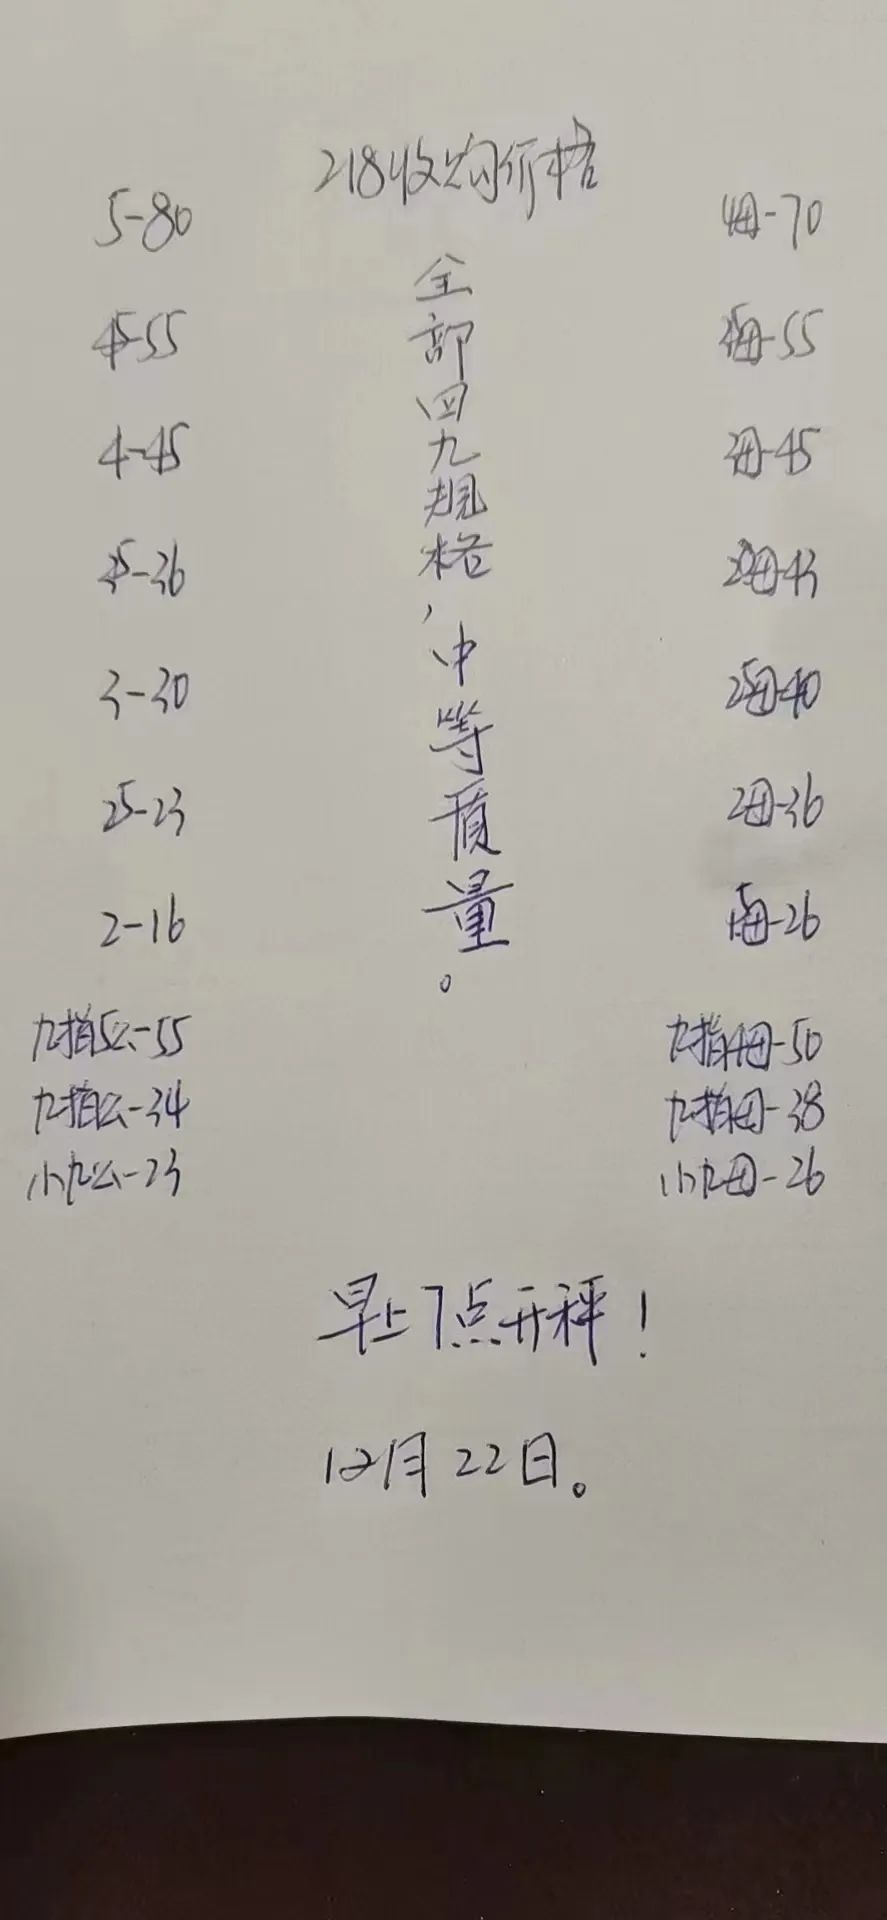 218收购价格
5-80
45-55
4-45
35-36
3-30
25-23
2-16
九指5公-55
九指公-34
小九公-23
全部四九规格,中等质量。
4母-70
35母-55
3母-45
母-43
25母-40
2母-36
母-26
九指4母-50
九指母-38
小九母-26
早上7点开秤!
12月22日。